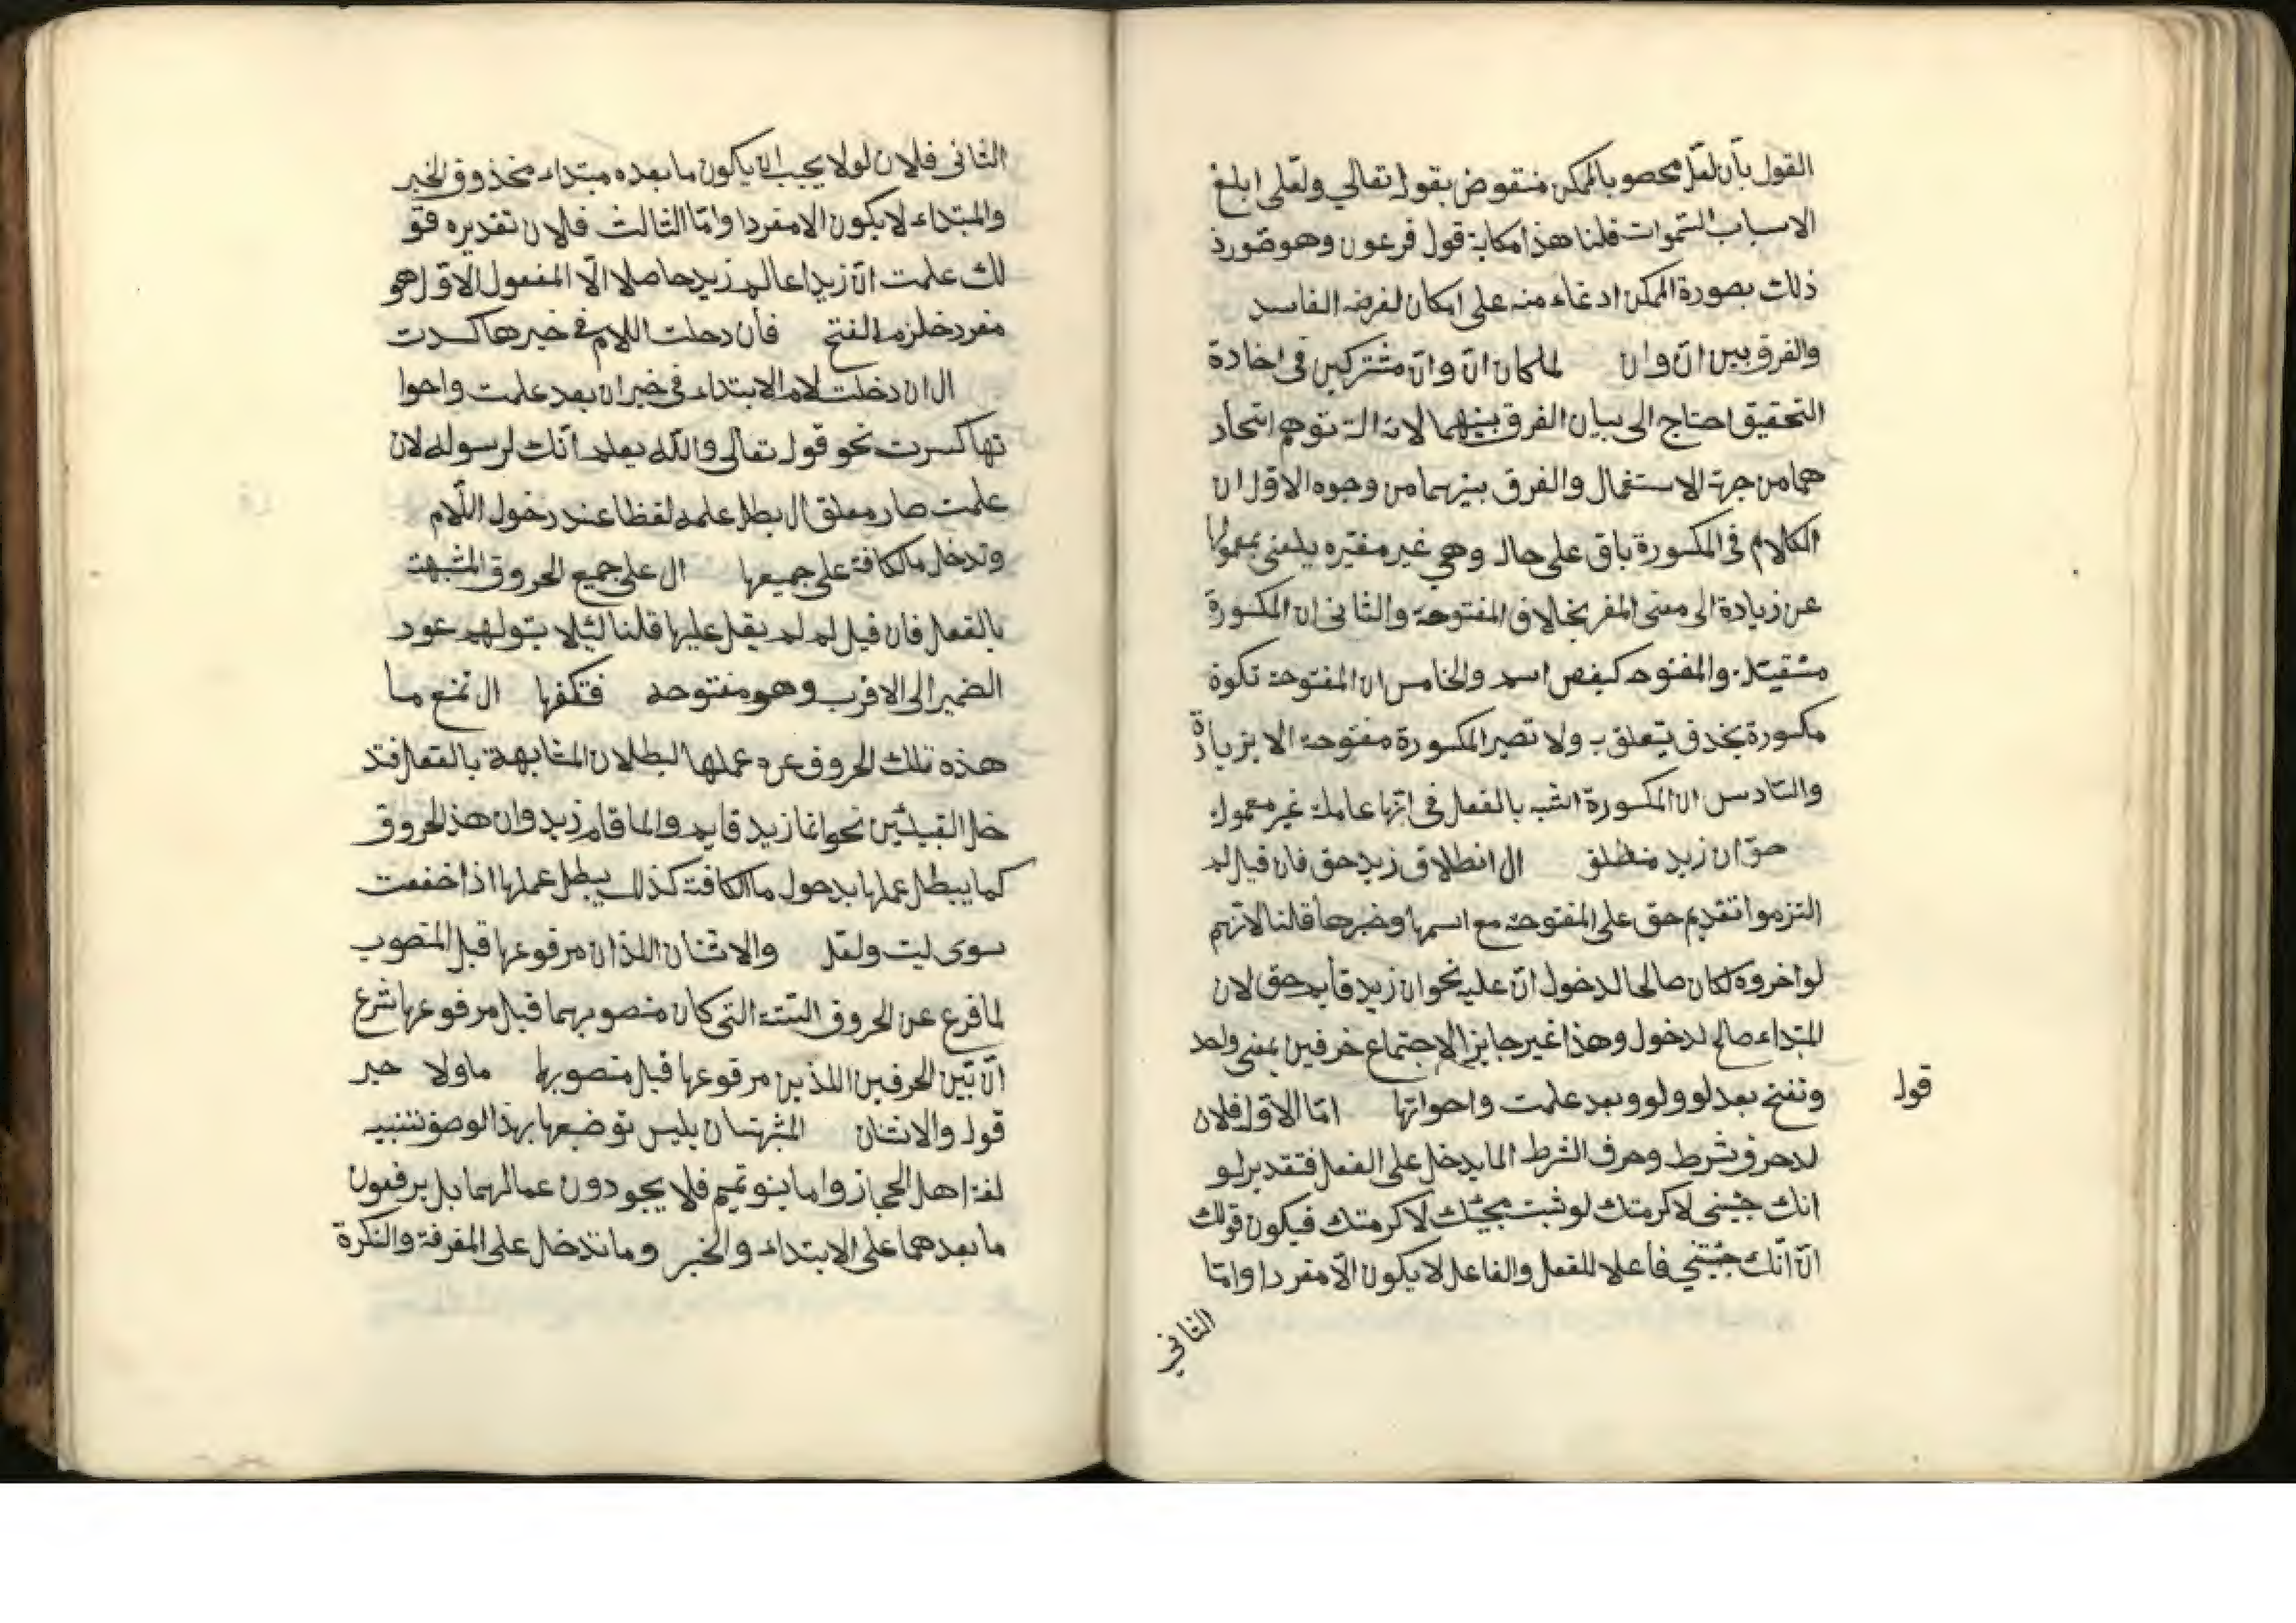 القول بأن لعلّ محصو بالممكن منقوض بقول تعالي ولعلى ابلغ
الاسباب السموات قلنا هذا مكاية قول فرعون وهو صورذ
ذلك بصورة الممكن ادعاء منه على امكان لفرضه الفاسد
والفرق بين انّ وان لملمان انّ وانّ مشتركين فى اخادة
التحقيق احتاج الى بيان الفرق بينهما لانه الـة توهم اتحاد
هما من جهة الاستعمال والفرق بينهما من وجوه الاوّل ان
الكلام فى المكسورة باق على حال وهي غير مغيّره يلعنى بمعمولها
عن زيادة الى معنى المفر بخالاف المفتوحة والثانى ان المكسورة
مشقيتل. والمفتوحه كبفص اسم والخامس ان المفتوحة تكوة
مكسورة بخدف يتعلق به ولا تصير المكسورة مفتوحة الا بزيادة
والسّادس ان المكسورة اشبه بالفعل فى انّها عاملة غير معمولة
حقّ ان زيد منطلق ال انطلاق زيد حق فان قيل لم
التزموا تقديم حق على المفتوحة مع اسمها وخبرها قلنا لانّهم
لو اخروه لكان صالحا لدخول انّ عليه نحو ان زيد قايم حق لان
المبتداء صالح لدخول وهذا غير جايز الاجتماع خرفين بمعنى واحد
قول
وتفتح بعد لو ولو وبعد علمت واحواتها امّا الاوّل فلان
لدحرف شرط وحرف الشرط المايدخل على الفعل فتقدير لو
انك جئتنى لاكرمتك لو ثبت مجيّك لاكرمتك فيكون قولك
انّ انّك جئتني فأعلا للفعل والفاعل لا يكون الّا مفردا وامّا
الثاني
الثانى فلان لولا يجب ان يكون ما بعده مبتداء مخذوف الخبر
والمبتداء لا يكون الا مفردا وامّا الثالث فلان تقديره قو
لك علمت انّ زيدا عالم زيد حاصلا الّا المفعول الاوّل هو
مفرد خلزم الفتح فأن دحلت اللام فى خبرها كسدت
ال ان دخلت لام الابتداء فى خبر ان بعد علمت واحوا
تها كسرت نحو قول تعالى واللّه يعلم انّك لرسوله لان
علمت صار معلق ال بطل علمه لفظا عند رخول اللّام
وتدخل ما الكافة على جميعها ال على جميع الحروف المشبهة
بالفعل فان قيل لم لم يقل عليها قلنا لئلا يتولهم عود
الضمير الى الاقرب وهو مفتوحة فتكفها ال تمنع ما
هذه تلك الحروف عن عملها البطلان المشابهة بالفعل فتد
خل القبيلتين نحو انما زيد قايم والما قام زيد وان هذ الحروف
كما يبطل عملها بدحول ما الكافة كذلك يبطل عملها اذا خففت
سوى ليت ولعل والاثنان اللذان مرفوعها قبل المنصوب
لما فرع عن الحروف الستة التى كان منصوبهما قبل مرفوعها شرع
انّ تبّين الحرفين اللذين مرقوعها قبل منصوبها ما ولا حبر
قول والاثنان المشبهتان بليس توضعها بهذ الوصف تنبيه
لغة اهل الحجاز واما بنو تميم فلا يجودون عمالهما بل يرفعون
ما بعدهما على الابتداء والخبر وما تدخل على المفرفة والنكرة